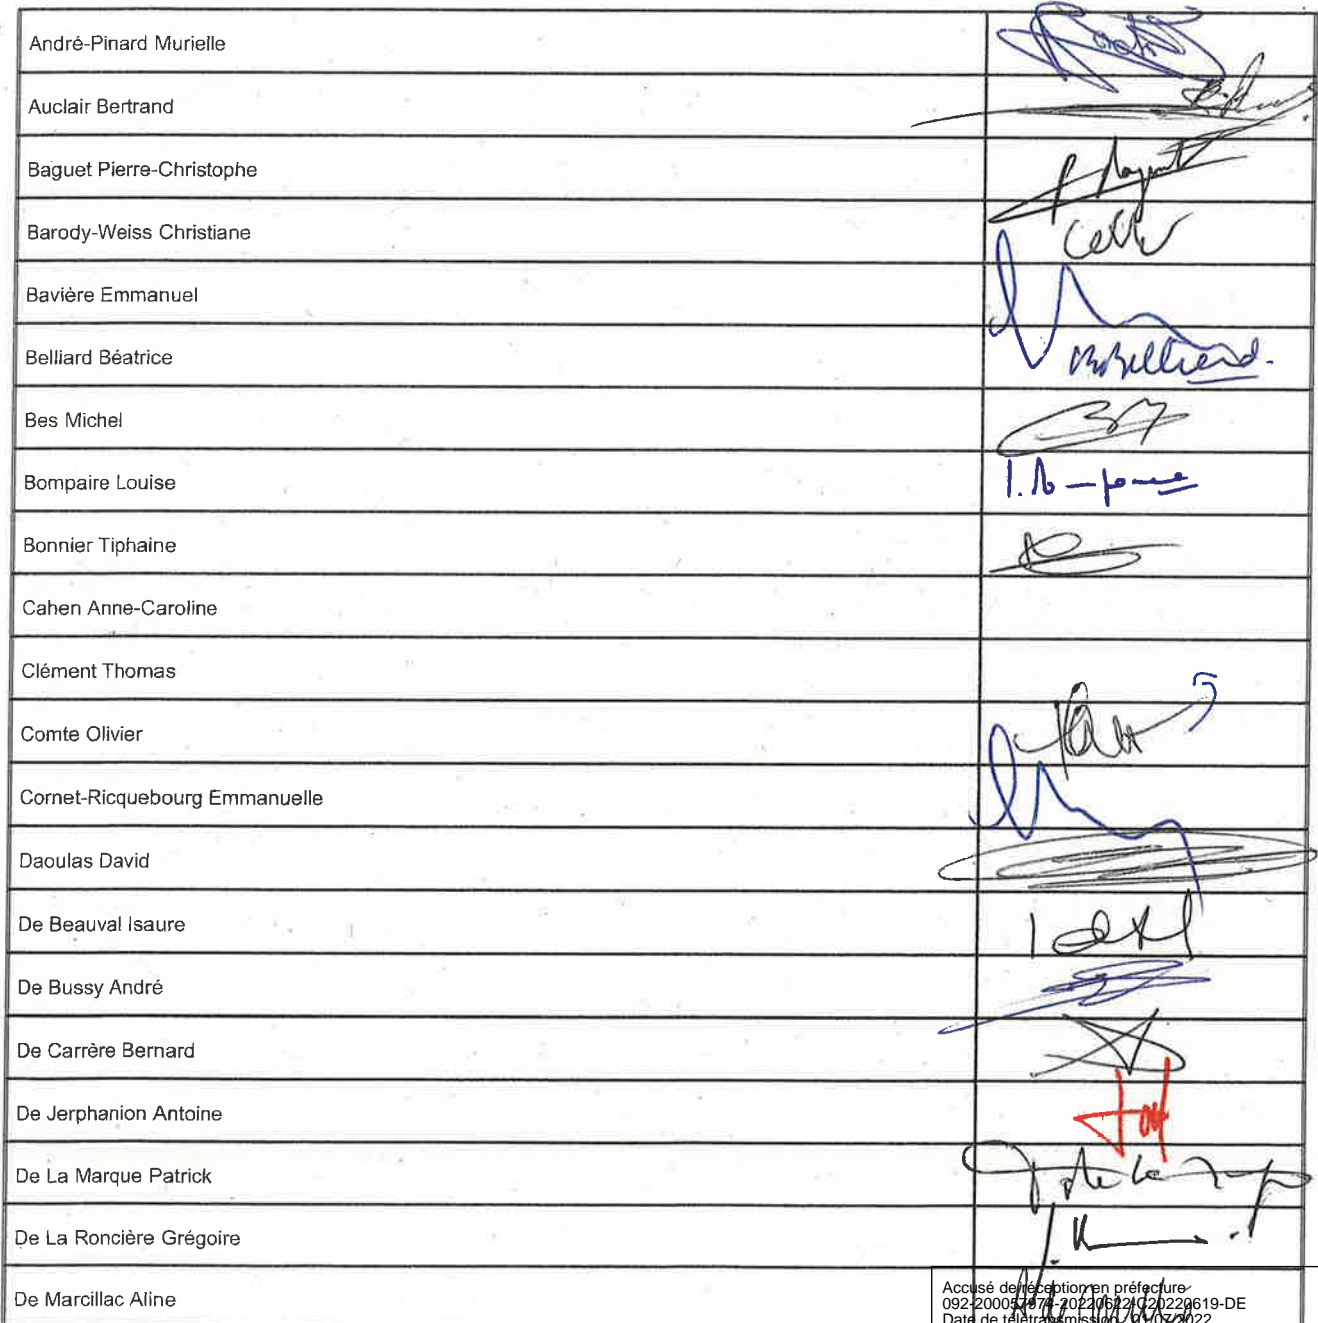 André-Pinard Murielle
Auclair Bertrand
Baguet Pierre-Christophe
Barody-Weiss Christiane
Bavière Emmanuel
Belliard Béatrice
Bes Michel
Bompaire Louise
Bonnier Tiphaine
Cahen Anne-Caroline
Clément Thomas
Comte Olivier
Cornet-Ricquebourg Emmanuelle
Daoulas David
De Beauval Isaure
De Bussy André
De Carrère Bernard
De Jerphanion Antoine
De La Marque Patrick
De La Roncière Grégoire
De Marcillac Aline
Accusé de réception en préfecture
092-200057974-20220622-C20220619-DE
Date de télétransmission : 01/07/2022